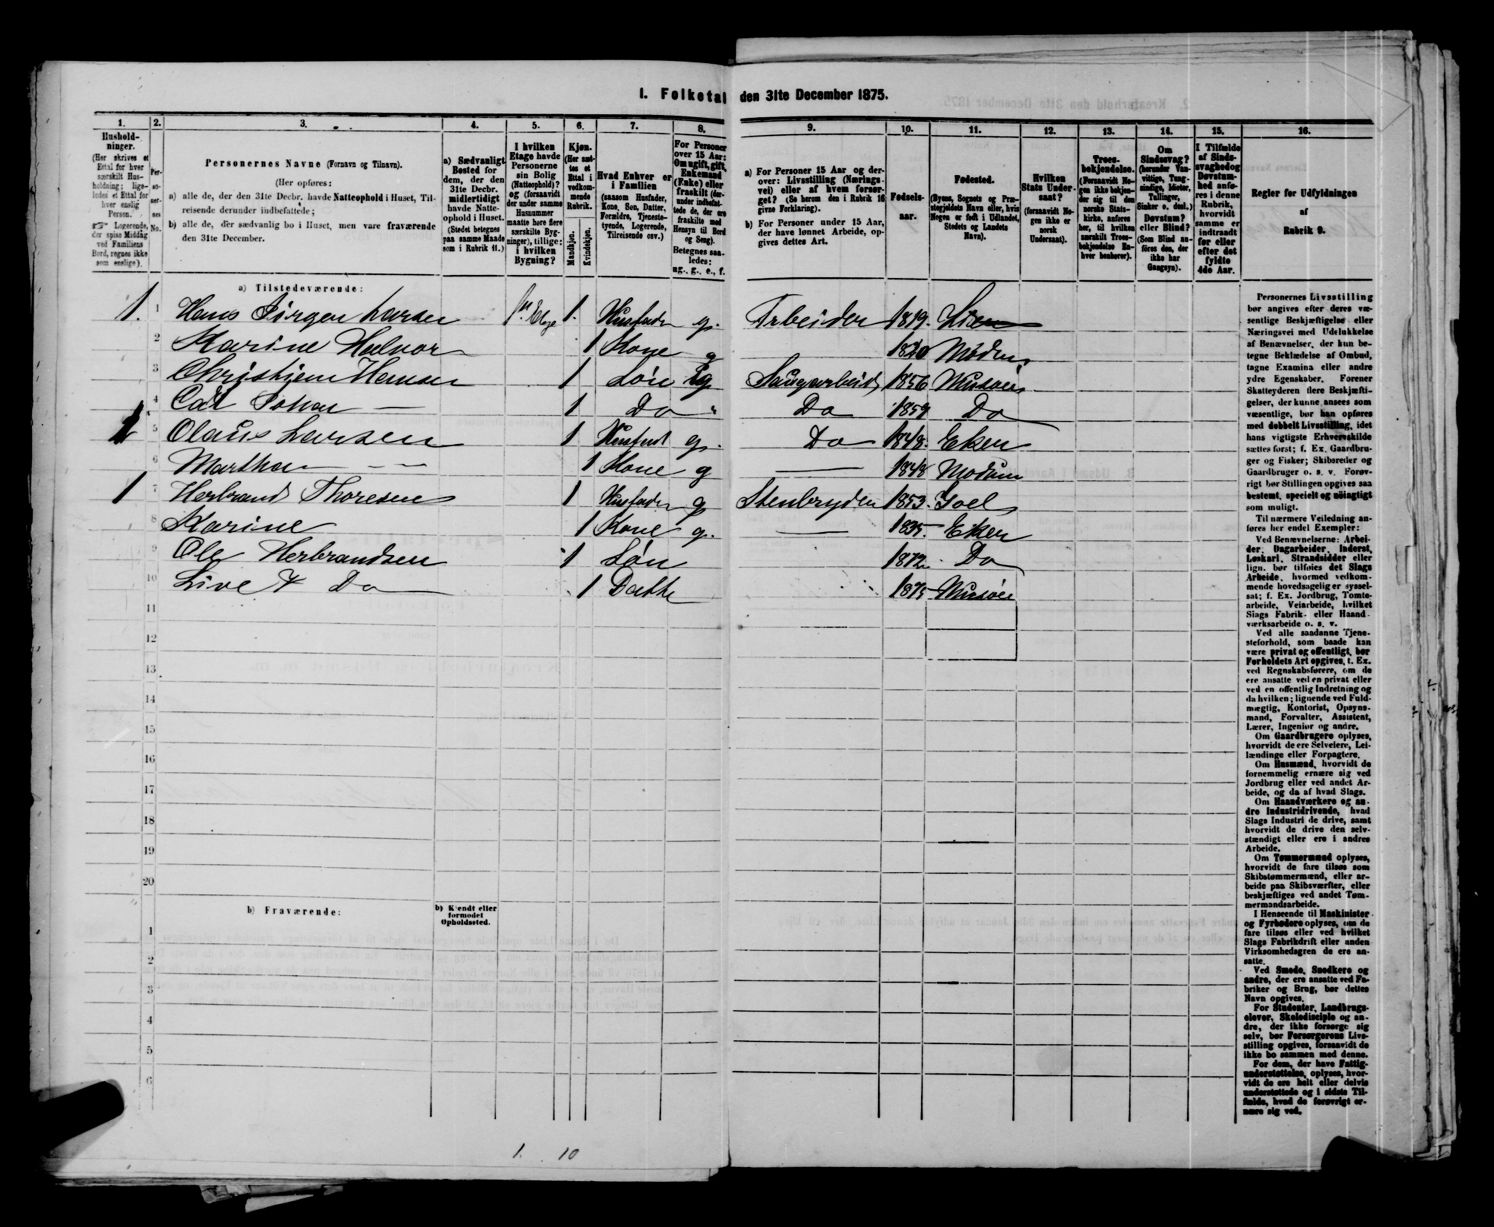 I. Folketal den 31te December 1875.
1.
Hushold-
ninger.
(Her skrives et
Ettal for hver
særskilt Hus-
holdning; lige-
ledes et Ettal for
hver enslig
Person.
Logerende,
der spise Middag
ved Familiens
Bord, regnes ikke
som enslige).
2.
Per-
so-
ner-
nes
No.
3.
Personernes Navne (Fornavn og Tilnavn).
(Her opføres:
a) alle de, der den 31te Decbr. havde Natteophold i Huset, Til-
reisende derunder indbefattede;
b) alle de, der sædvanlig bo i Huset, men vare fraværende
den 31te December.
4.
a) Sædvanligt
Bosted for
dem, der den
31te Decbr.
midlertidigt
havde Natte-
ophold i Huset.
(Stedet betegnes
paa samme Maade
som i Rubrik 11.)
5.
I hvilken
Etage havde
Personerne
sin Bolig
(Natteophold)?
og (forsaavidt
der under samme
Husnummer
maatte høre flere
særskilte Byg-
ninger), tillige:
i hvilken
Bygning?
6.
Kjøn.
(Her sæt-
tes et
Ettal i
vedkom-
mende
Rubrik.
Mandkjøn.
Kvindekjøn.
7.
Hvad Enhver er
i Familien
(saasom Husfader,
Kone, Søn, Datter,
Forældre, Tjeneste-
tyende, Logerende,
Tilreisende osv.)
8.
For Personer
over 15 Aar:
Om ugift, gift,
Enkemand
(Enke) eller
fraskilt (der-
under indbefat-
tede de, der ere
fraskilte med
Hensyn til Bord
og Seng).
Betegnes saa-
ledes:
ug., g., e., f.
9.
a) For Personer 15 Aar og der-
over: Livsstilling (Nærings-
vei) eller af hvem forsør-
get? (Se herom den i Rubrik 16
givne Forklaring).
b) For Personer under 15 Aar,
der have lønnet Arbeide, op-
gives dettes Art.
10.
Fødsels-
aar.
11.
Fødested.
(Byens, Sognets og Præ-
stegjeldets Navn eller, hvis
Nogen er født i Udlandet,
Stedets og Landets
Navn).
12.
Hvilken
Stats Under-
saat?
(forsaavidt No-
gen ikke er
norsk
Undersaat).
13.
Troes-
bekjendelse.
(Forsaavidt No-
gen ikke bekjen-
der sig til den
norske Stats-
kirke, anføres
her, til hvilken
særskilt Troes-
bekjendelse En-
hver henhører).
14.
Om
Sindssvag?
(herunder Van-
vittige, Tung-
sindige, Idioter,
Tullinger,
Sinker o. desl.)
Døvstum?
eller Blind?
(Som Blind an-
føres den, der
ikke har
Gangsyn).
15.
I Tilfælde
af Sinds-
svaghed og
Døvstum-
hed anfø-
res i denne
Rubrik,
hvorvidt
samme er
indtraadt
før eller
efter det
fyldte
4de Aar.
16.
Regler for Udfyldningen
af
Rubrik 9.
a) Tilstedeværende:
1. 1 Hans Jørgen Larsen 1ste Etage 1. Husfader g. Arbeider 1819. Lier
2 Karine Halvor 1 Kone g 1820 Modum
3 Christian Hansen 1 Søn ug Saugarbeid, 1856 Mustøen
4 Carl Johan — 1 Do " Do 1859 Do
1 5 Olaus Larsen 1 Husfad g. Do 1848. Eker
6 Marthe — — 1 Kone g — 1848 Modum
1 7 Herbrand Thoresen 1 Husfader g Stenbryder 1853. Goel
8 Karine 1 Kone g. — 1835 Eker
9 Ole Herbrandsen 1 Søn 1872 Do
10 Live Do 1 Datte 1875
11
12
13
14
15
16
17
18
19
20
b) Fraværende:
b) Kjendt eller
formodet
Opholdssted.
1
2
3
4
5
6
Personernes Livsstilling
bør angives efter deres væ-
sentlige Beskjæftigelse eller
Næringsvei med Udelukkelse
af Benævnelser, der kun be-
tegne Beklædelse af Ombud,
tagne Examina eller andre
ydre Egenskaber. Forener
Skatteyderen flere Beskjæfti-
gelser, der kunne ansees som
væsentlige, bør han opføres
med dobbelt Livsstilling, idet
hans vigtigste Erhvervskilde
sættes først; f. Ex. Gaardbru-
ger og Fisker; Skibsreder og
Gaardbruger o. s. v. Forøv-
rigt bør Stillingen opgives saa
bestemt, specielt og nøiagtigt
som muligt.
Til nærmere Veiledning an-
føres her endel Exempler:
Ved Benævnelserne: Arbei-
der, Dagarbeider, Inderst,
Løskarl, Strandsidder eller
lign. bør tilføies det Slags
Arbeide, hvormed vedkom-
mende hovedsagelig er syssel-
sat; f. Ex. Jordbrug, Tomte-
arbeide, Veiarbeide, hvilket
Slags Fabrik- eller Haand-
værksarbeide o. s. v.
Ved alle saadanne Tjene-
steforhold, som baade kan
være privat og offentligt, bør
Forholdets Art opgives, t. Ex.
ved Regnskabsførere, om de
ere ansatte ved en privat eller
ved en offentlig Indretning og
da hvilken; lignende ved Fuld-
mægtig, Kontorist, Opsyns-
mand, Forvalter, Assistent,
Lærer, Ingeniør og andre.
Om Gaardbrugere oplyses,
hvorvidt de ere Selveiere, Lei-
lændinge eller Forpagtere.
Om Husmænd, hvorvidt de
fornemmelig ernære sig ved
Jordbrug eller ved andet Ar-
beide, og da af hvad Slags.
Om Haandværkere og an-
dre Industridrivende, hvad
Slags Industri de drive, samt
hvorvidt de drive den selv-
stændigt eller ere i andres
Arbeide.
Om Tømmermænd oplyses,
hvorvidt de fare tilsøs som
Skibstømmermænd, eller ar-
beide paa Skibsværfter, eller
beskjæftiges ved andet Tøm-
mermandsarbeide.
I Henseende til Maskinister
og Fyrbødere oplyses, om de
fare tilsøs eller ved hvilket
Slags Fabrikdrift eller anden
Virksomhedsgren de ere an-
satte.
Ved Smede, Snedkere og
andre, der ere ansatte ved Fa-
briker og Brug, bør dettes
Navn opgives.
For Studenter, Landbrugs-
elever, Skoledisciple og an-
dre, der ikke forsørge sig
selv, bør Forsørgerens Livs-
stilling opgives, forsaavidt de
ikke bo sammen med denne.
For dem, der have Fattig-
understøttelse, oplyses, hvor-
vidt de ere helt eller delvis
understøttede og i sidste Til-
fælde, hvad de forøvrigt er-
nære sig ved.
1. 10